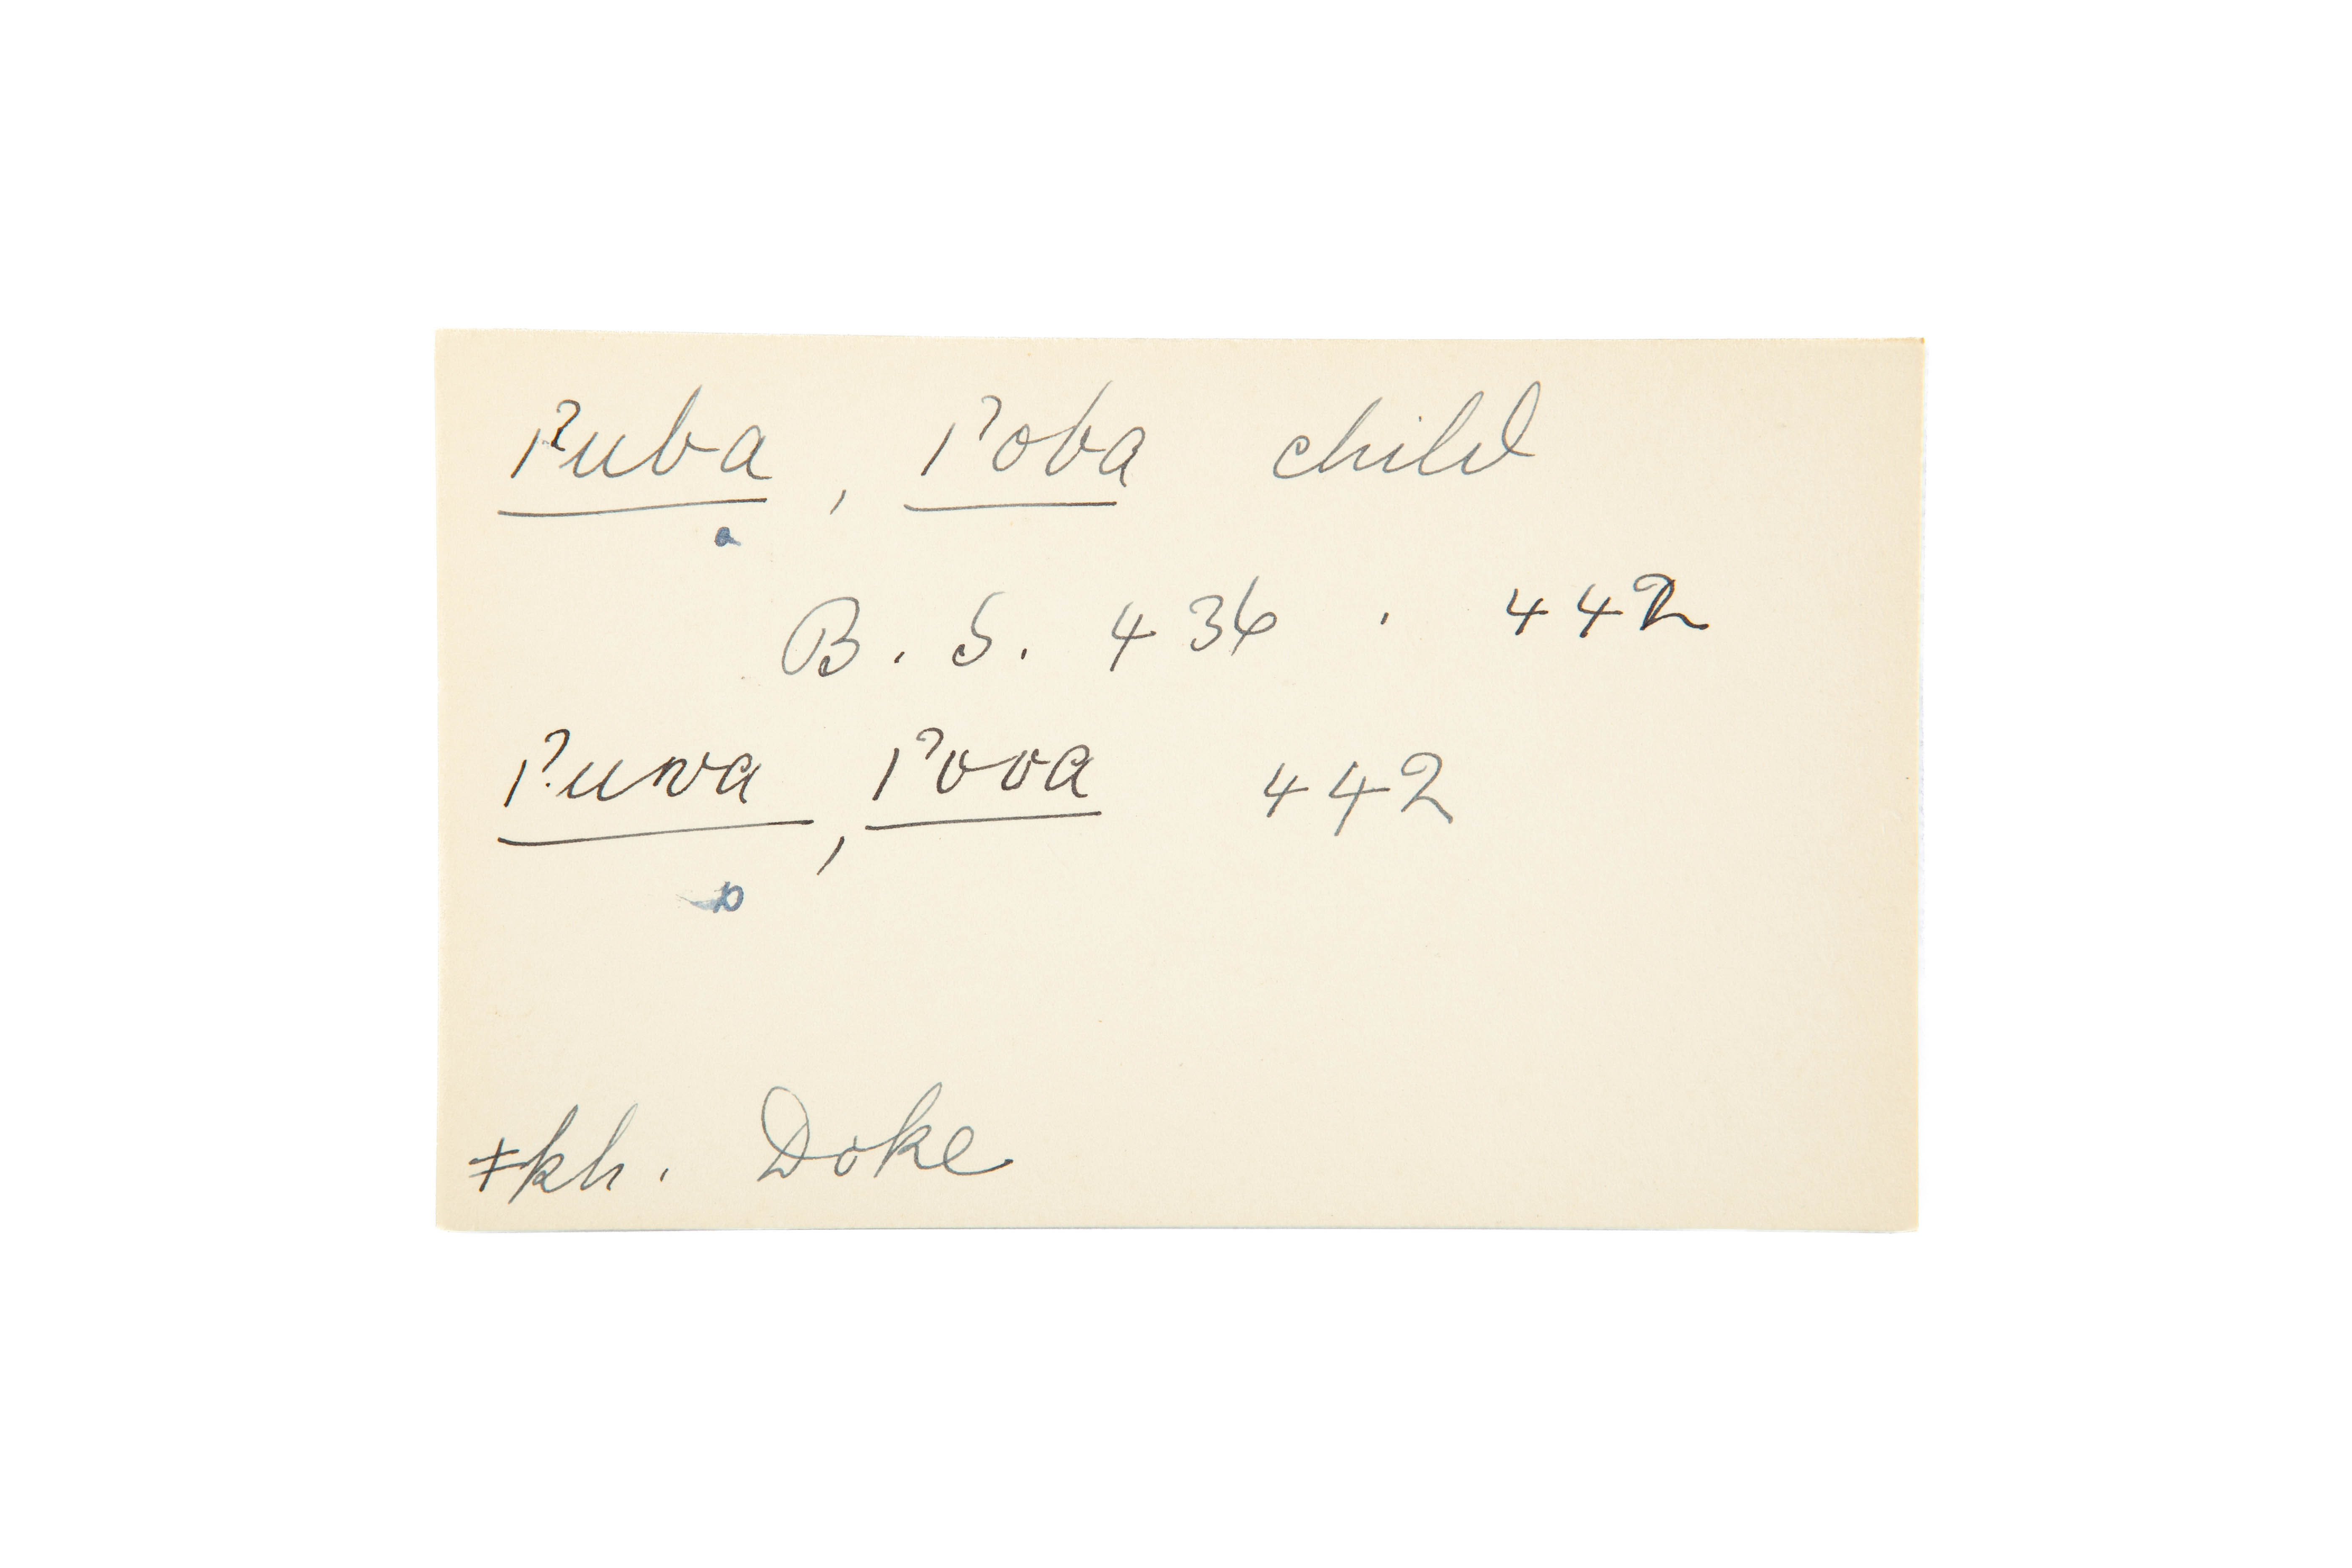 /ʔuba , /ʔoba child
a
B. S. 436 . 442
/ʔuva , /ʔova 442
b
ǂkh. Doke